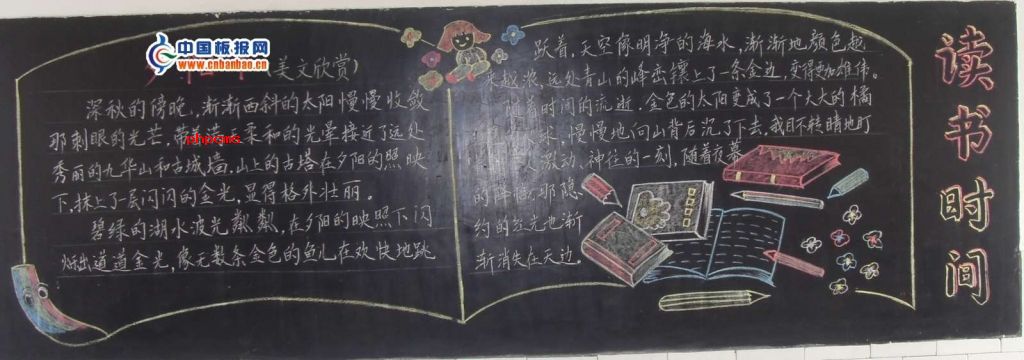 中国板报网
www.cnbanbao.cn
(美文欣赏)
深秋的傍晚,渐渐西斜的太阳慢慢收敛
那刺眼的光芒,带 柔和的光晕接近了远处
秀丽的九华山和古城墙,山上的古塔在夕阳的照映
下,抹上了层闪闪的金光,显得格外壮丽。
碧绿的湖水波光粼粼,在夕阳的映照下闪
出道道金光,像无数条金色的鱼儿在欢快地跳
跃着,天空像明净的海水,渐渐地颜色越
来越浓,远处青山的峰峦镶上了一条金边,变得更加雄伟。
随着时间的流逝,金色的太阳变成了一个大大的橘
球,慢慢地向山背后沉了下去,我目不转睛地盯
激动、神往的一刻,随着夜幕
的降临,那隐
约的 光也渐
渐消失在天边。
读书时间